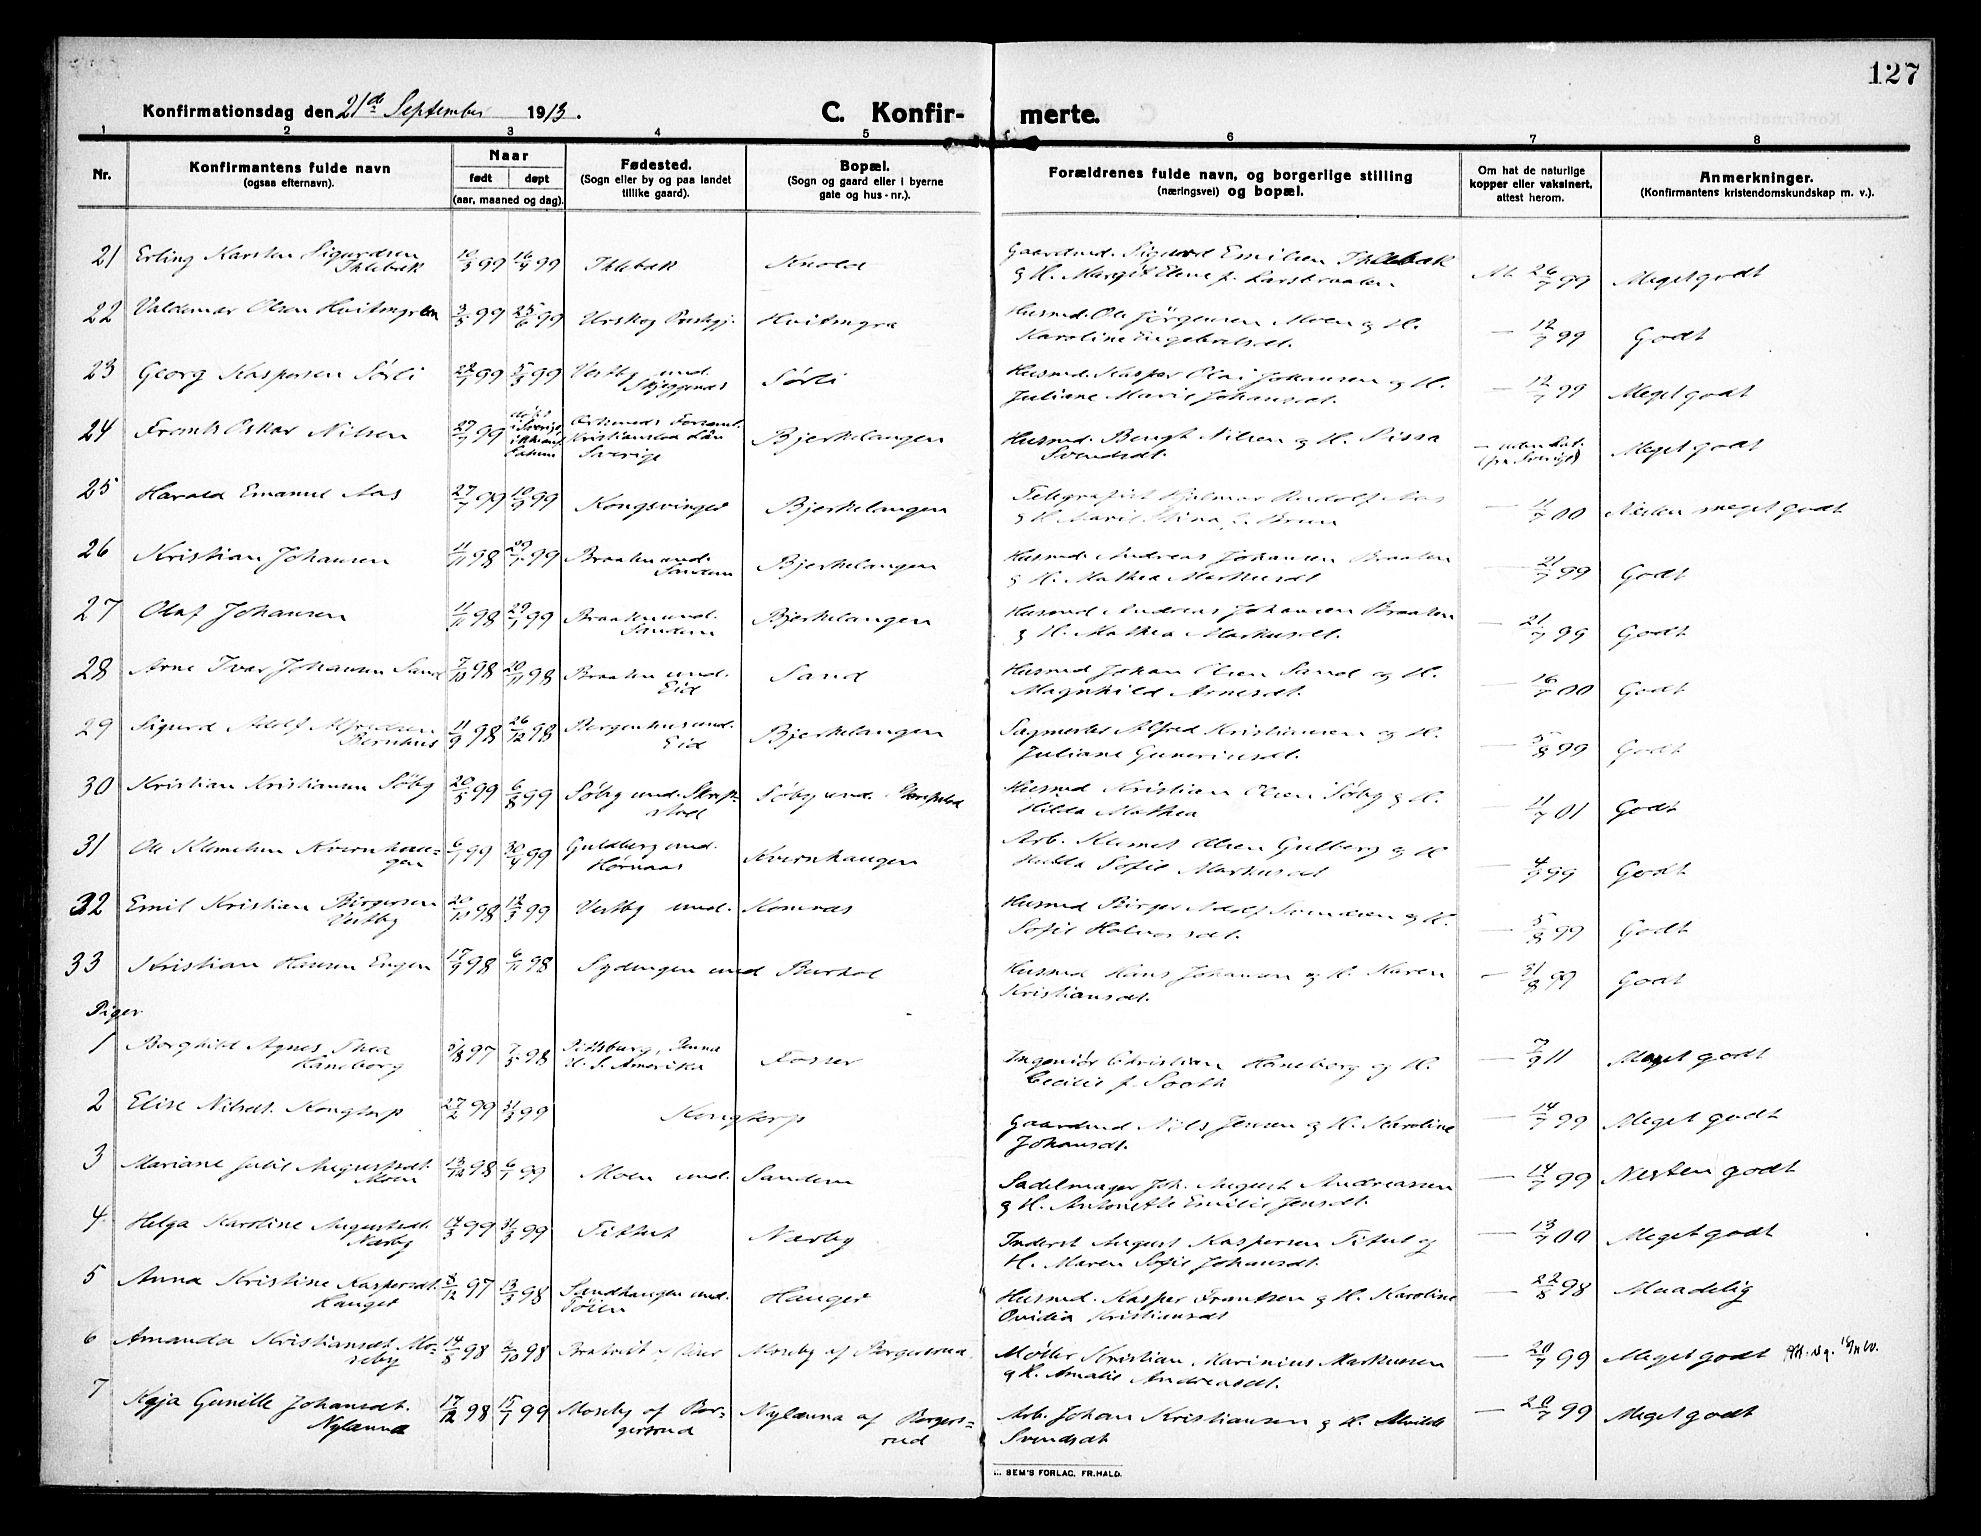 127
Konfirmationsdag den 21de September 1913.
C. Konfirmerte.
1 2 3 4 5 6 7 8
Nr.
Konfirmantens fulde navn
(ogsaa efternavn).
Naar
født døpt
(aar, maaned og dag).
Fødested.
(Sogn eller by og paa landet
tillike gaard).
Bopæl.
(Sogn og gaard eller i byerne
gate og hus-nr.).
Forældrenes fulde navn, og borgerlige stilling
(næringsvei) og bopæl.
Om hat de naturlige
kopper eller vaksinert,
attest herom.
Anmerkninger.
(Konfirmantens kristendomskundskap m. v.).
21 Erling Karsten Sigurdsen 10/3 99 16/4 99 Ihlebæk Gaardmd. Sigurd Emilien Ihlebæk At. 26/7 99 Meget godt
Ihlebæk & H. Margit Elene f.
22 Valdemar Olsen 3/5 99 25/6 99 Urskog Husmd. Ole Jørgensen Moen og H. — 12/7 99 Godt
Karoline Engebretsdt.
23 Georg Kaspersen Sørli 22/1 99 5/3 99 Vestby und. Sørli Husmd. Kasper Olai Johansen og H. — 12/7 99 Meget godt
Juliane Marie Johansdt.
24 Frants Oskar Nilsen 27/7 99 Kristianstad Län Sverige Bjerkelangen Husmd. Bengt Nilsen og H. Sissa — (fra Sverige) Meget godt
Svendsdt.
25 Harald Emanuel Aas 27/7 99 10/9 99 Kongsvinger Bjerkelangen Telegrafist Hjalmar Rudolf Aas — 11/7 00 Nesten meget godt
& H. Marie Stina f. Bruu
26 Kristian Johansen 11/11 98 29/1 99 Braaten und. Bjerkelangen Husmd. Andreas Johansen Braaten — 21/7 99 Godt
Sandem & H. Mathea Markusdt.
27 Olaf Johansen 11/11 98 29/1 99 Braaten und. Bjerkelangen Husmd. Andreas Johansen Braaten — 21/7 99 Godt
Sandem & H. Mathea Markusdt.
28 Arne Ivar Johansen Sand 7/10 98 20/11 98 Braaten und. Sand Husmd. Johan Olsen Sand og H. — 16/7 00 Godt
Eid Magnhild Arnesdt.
29 Sigurd Adolf Alfredsen 11/9 98 26/12 98 und. Bjerkelangen Sagmester Alfred Kristiansen og H. — 5/8 99 Godt
Eid Juliane Guneriusdt.
30 Kristian Kristiansen Søby 20/5 99 6/8 99 Søby und. Søby und. Husmd. Kristian Olsen Søby & H. — 11/7 01 Godt
Hilda Mathea
31 Ole Klemetsen Kvernhaugen 6/1 99 30/4 99 Guldberg und. Kvernhaugen Arb. Klemet Olsen Gulberg og H. — 4/9 99 Godt
Hørnaas Hulda Sofie Markusdt
32 Emil Kristian Birgersen 20/10 98 12/3 99 Vestby und. Komnæs Husmd Birger Adolf Svendsen og H. — 5/8 99 Godt
Vestby Sofie Halvorsdt.
33 Kristian Hansen Engen 17/9 98 6/11 98 Sydengen und Burhol Husmd Hans Johansen og H. Karen — 31/8 99 Godt
Kristiansdt.
Piger
1 Borghild Agnes Thea 5/8 97 7/5 98 Pittsburg, Penna Fosser Ingeniør Christian Haneborg og H. — 7/9 11 Meget godt
Haneborg U. S. Amerika Cecilie f. Sooth
2 Elise Nilsdt. Kongtorp 27/2 99 31/3 99 Kongtorp Gaardmd Nils Jensen og H. Karoline — 14/7 99 Meget godt
Johansdt.
3 Mariane Julie Augustsdt. 13/12 98 6/1 99 Moen und. Sandem Sadelmager Joh. August Andreassen — 14/7 99 Nesten godt
Moen & H. Antonette Emilie Jensdt.
4 Helga Karoline Augustsdt. 14/3 99 31/3 99 Nærby Inderst August Kaspersen Titut og — 13/7 00 Meget godt
Nærby H. Maren Sofie Johansdt.
5 Anna Kristine Kaspersdt. 8/12 97 13/3 98 Sandhaugen und. Hanger Husmd. Kasper Frantsen og H. Karoline — 22/8 98 Maadelig
Tøien Ovidia Kristiansdt
6 Amanda Kristiansdt. Moseby 14/8 98 2/10 98 Moseby af Borgersrud Møller Kristian Marinius Markussen — 20/7 99 Meget godt
& H. Amalie Andreasdt.
7 Kaja Gunille Johansdt. 17/12 98 15/1 99 Moseby af Borgersrud Nylænna af Borgersrud Arb. Johan Kristiansen & H. Alvilde — 20/7 99 Meget godt
Nylænna Svendsdt
SEM'S FORLAG, FR.HALD.